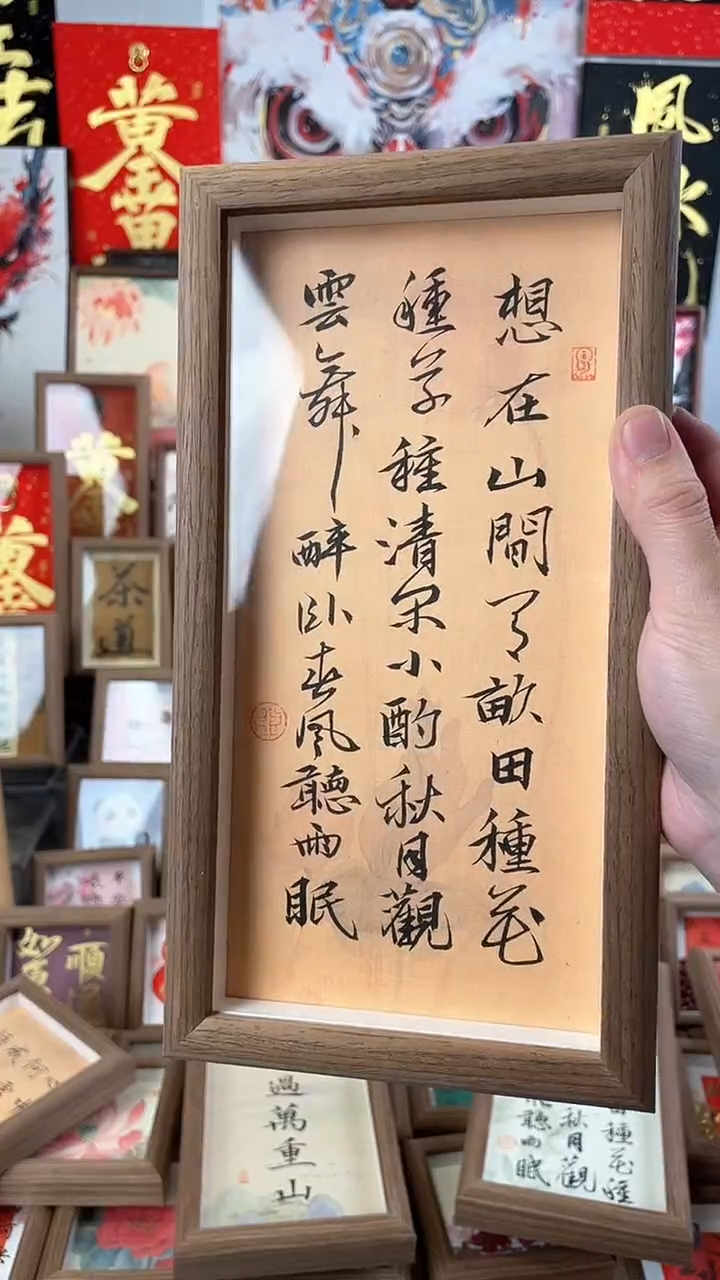 想在山間了畝田種花
種草種清小酌秋月觀
雲舞醉臥春風聽雨眠
黃金
風水
茶道
過萬重山
種花種
秋月觀
聽雨眠
順
如